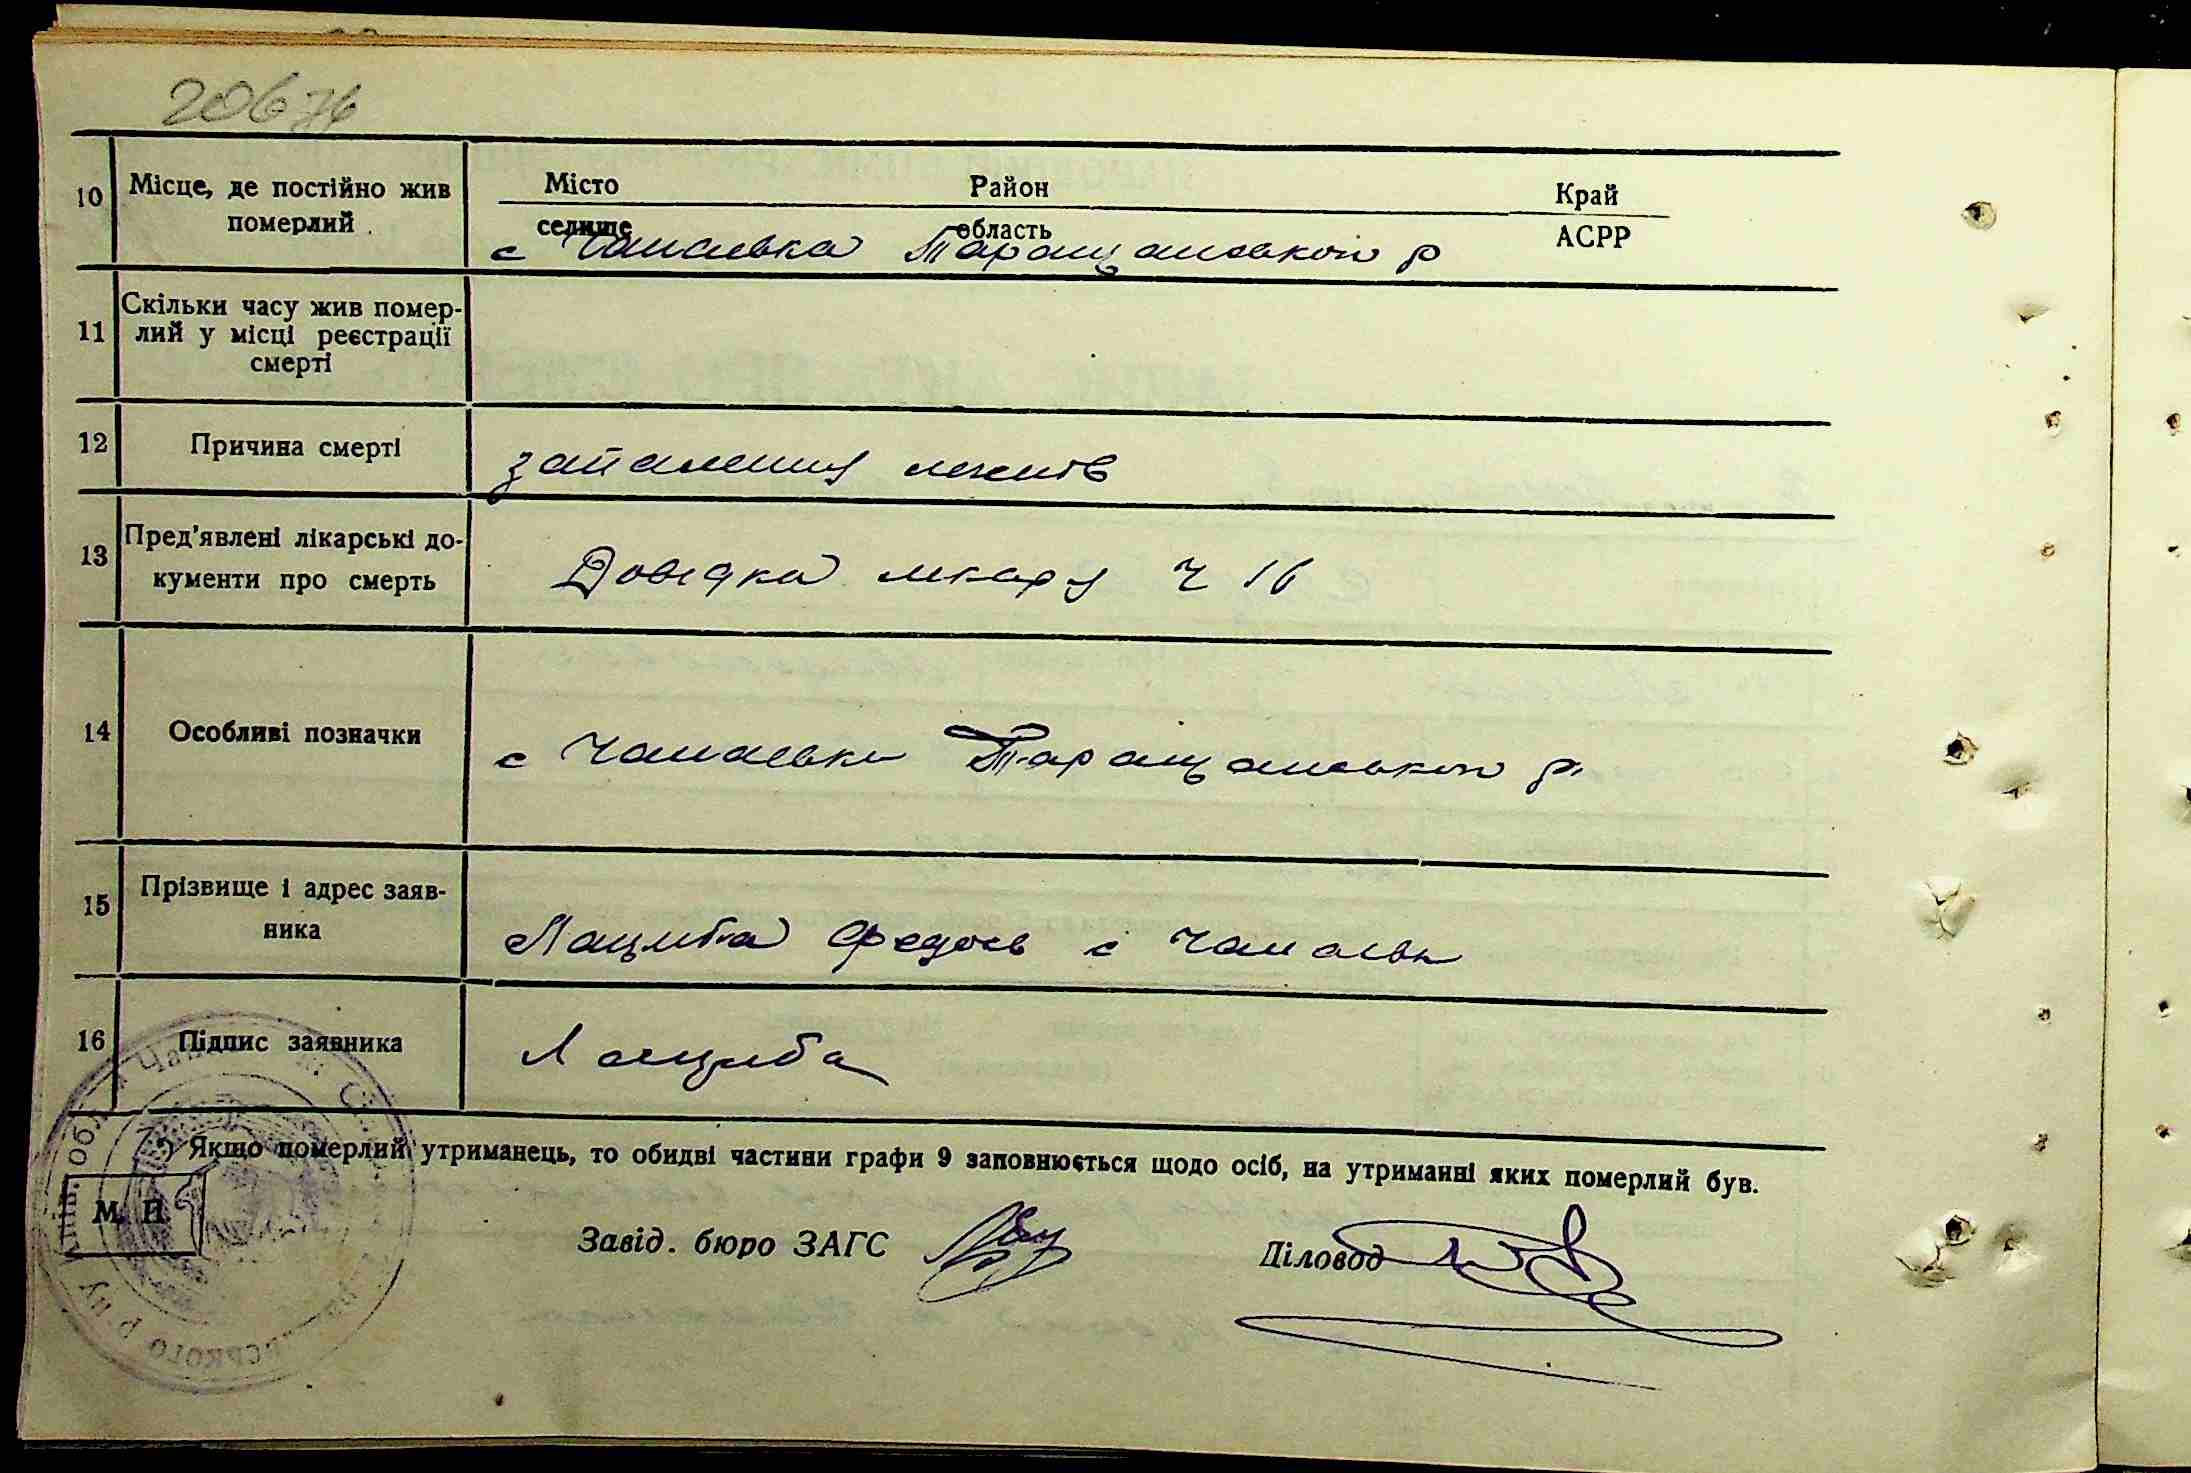 20674
10 Місце, де постійно жив
померлий
Місто Район Край
селище область АСРР
с Чапаевка Таращанської р
11 Скільки часу жив помер-
лий у місці реєстрації
смерті
12 Причина смерті запалення легенів
13 Пред'явлені лікарські до-
кументи про смерть
Довідка лікаря Ч 16
14 Особливі позначки с Чапаевки Таращанської р.
15 Прізвище і адрес заяв-
ника
Лацмба с
16 Підпис заявника Лацмба
*) Якщо померлий утриманець, то обидві частини графи 9 заповнюється щодо осіб, на утриманні яких померлий був.
М. П.
Завід. бюро ЗАГС Діловод